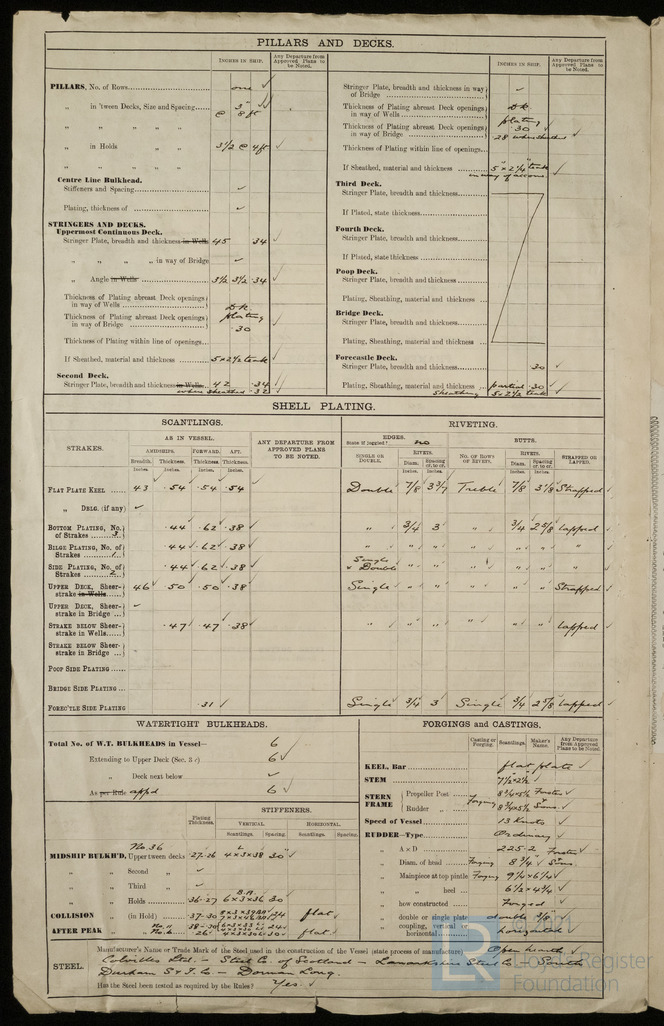 PILLARS AND DECKS.
INCHES IN SHIP. Any Departure from Approved Plans to be Noted.
INCHES IN SHIP. Any Departure from Approved Plans to be Noted.
PILLARS, No. of Rows one ✓
„ in 'tween Decks, Size and Spacing 3" @ 8 ft ✓
„ „ „ „ „
„ in Holds „ „ 3 1/2 @ 4 ft ✓
„ „ „ „
Centre Line Bulkhead.
Stiffeners and Spacing ✓
Plating, thickness of ✓
STRINGERS AND DECKS.
Uppermost Continuous Deck.
Stringer Plate, breadth and thickness in Wells 45 .34 ✓
„ „ „ „ in way of Bridge ✓
„ Angle in Wells 3 1/2 3 1/2 .34 ✓
Thickness of Plating abreast Deck openings in way of Wells Dk. plating
Thickness of Plating abreast Deck openings in way of Bridge .30
Thickness of Plating within line of openings
If Sheathed, material and thickness 5 x 2 1/2 teak ✓
Second Deck.
Stringer Plate, breadth and thickness in Wells 42 .34 ✓
where sheathed .32
Stringer Plate, breadth and thickness in way of Bridge ✓
Thickness of Plating abreast Deck openings in way of Wells Dk. plating
Thickness of Plating abreast Deck openings in way of Bridge .30 ✓
.28 when sheathed ✓
Thickness of Plating within line of openings
If Sheathed, material and thickness 5 x 2 1/4" teak ✓
in way of
Third Deck.
Stringer Plate, breadth and thickness
If Plated, state thickness
Fourth Deck.
Stringer Plate, breadth and thickness
If Plated, state thickness
Poop Deck.
Stringer Plate, breadth and thickness
Plating, Sheathing, material and thickness
Bridge Deck.
Stringer Plate, breadth and thickness
Plating, Sheathing, material and thickness
Forecastle Deck.
Stringer Plate, breadth and thickness .30 ✓
Plating, Sheathing, material and thickness partial .30 ✓
Sheathing 5 x 2 1/2 teak ✓
SHELL PLATING.
SCANTLINGS. RIVETING.
STRAKES. AS IN VESSEL. ANY DEPARTURE FROM APPROVED PLANS TO BE NOTED. EDGES. State if joggled? no BUTTS.
AMIDSHIPS. FORWARD. AFT. SINGLE OR DOUBLE. RIVETS. NO. OF ROWS OF RIVETS. RIVETS. STRAPPED OR LAPPED.
Breadth. Thickness. Thickness. Thickness. Diam. Spacing cr. to cr. Diam. Spacing cr. to cr.
Inches. Inches. Inches. Inches. Inches. Inches. Inches. Inches.
FLAT PLATE KEEL 43 .54 .54 .54 Double 7/8 3 3/7 Treble 7/8 3 1/8 Strapped
„ DBLG. (if any) ✓
BOTTOM PLATING, No. of Strakes 3 .44 .62 .38 „ 3/4 3 „ 3/4 2 5/8 lapped
BILGE PLATING, No. of Strakes 1 .44 .62 .38 „ „ „ „ „ „ „
SIDE PLATING, No. of Strakes 2 .44 .62 .38 Single & Double „ „ „ „ „ „
UPPER DECK, Sheerstrake in Wells 46 .50 .50 .38 Single „ „ „ „ „ Strapped
UPPER DECK, Sheerstrake in Bridge ✓
STRAKE BELOW Sheerstrake in Wells .47 .47 .38 „ „ „ „ „ „ lapped
STRAKE BELOW Sheerstrake in Bridge
POOP SIDE PLATING
BRIDGE SIDE PLATING
FORE'C'TLE SIDE PLATING .31 ✓ Single 3/4 3 Single 3/4 2 5/8 lapped
WATERTIGHT BULKHEADS.
Total No. of W.T. BULKHEADS in Vessel— 6
Extending to Upper Deck (Sec. 3 c) 6 ✓
„ Deck next below ✓
As per Rule appd 6 ✓
STIFFENERS.
Plating Thickness. VERTICAL. HORIZONTAL.
Scantlings. Spacing. Scantlings. Spacing.
No. 36
MIDSHIP BULKH'D, Upper tween decks .27-.26 4 x 3 x 38 30 ✓
„ „ Second „ ✓
„ „ Third „ ✓
B.A.
„ „ Holds .36-.27 6 x 3 x 36 30
COLLISION „ (in Hold) .37-.30 34 flat ✓
AFTER PEAK „ „ flat ✓
FORGINGS and CASTINGS.
Casting or Forging. Scantlings. Maker's Name. Any Departure from Approved Plans to be Noted.
KEEL, Bar flat plate ✓
STEM 7 1/2 x 2 1/2 ✓
STERN FRAME { Propeller Post Forging 8 3/4 x 5 1/2 Forster ✓
Rudder „ 8 3/4 x 5 1/2 & Sons ✓
Speed of Vessel 13 Knots ✓
RUDDER—Type Ordinary ✓
„ A x D 225.2 ✓
„ Diam. of head Forging 8 3/4 Forster & Sons ✓
„ Mainpiece at top pintle Forging 9 1/4 x 6 1/4 ✓
„ „ heel 6 1/2 x 4 3/4 ✓
„ how constructed Forged ✓
„ double or single plate double
„ coupling, vertical or horizontal horizontal ✓
STEEL. Manufacturer's Name or Trade Mark of the Steel used in the construction of the Vessel (state process of manufacture) Open hearth
Colvilles Ltd. – Steel Co. of Scotland – Lanarkshire Steel Co – South
Durham S & I. Co – Dorman Long.
Has the Steel been tested as required by the Rules? Yes. ✓
LR
© 2021
Lloyd's Register
Foundation